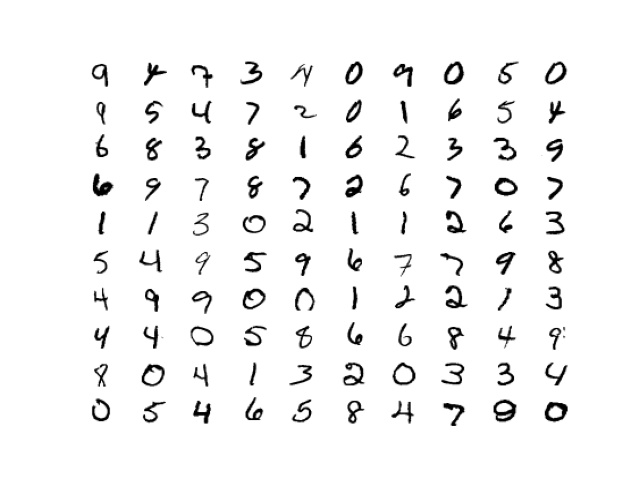 9 4 7 3 4 0 9 0 5 0
9 5 4 7 2 0 1 6 5 4
6 8 3 8 1 6 2 3 3 9
6 9 7 8 7 2 6 7 0 7
1 1 3 0 2 1 1 2 6 3
5 4 9 5 9 6 7 7 9 8
4 9 9 0 0 1 2 2 1 3
4 4 0 5 8 6 6 8 4 9
8 0 4 1 3 2 0 3 3 4
0 5 4 6 5 8 4 7 9 0